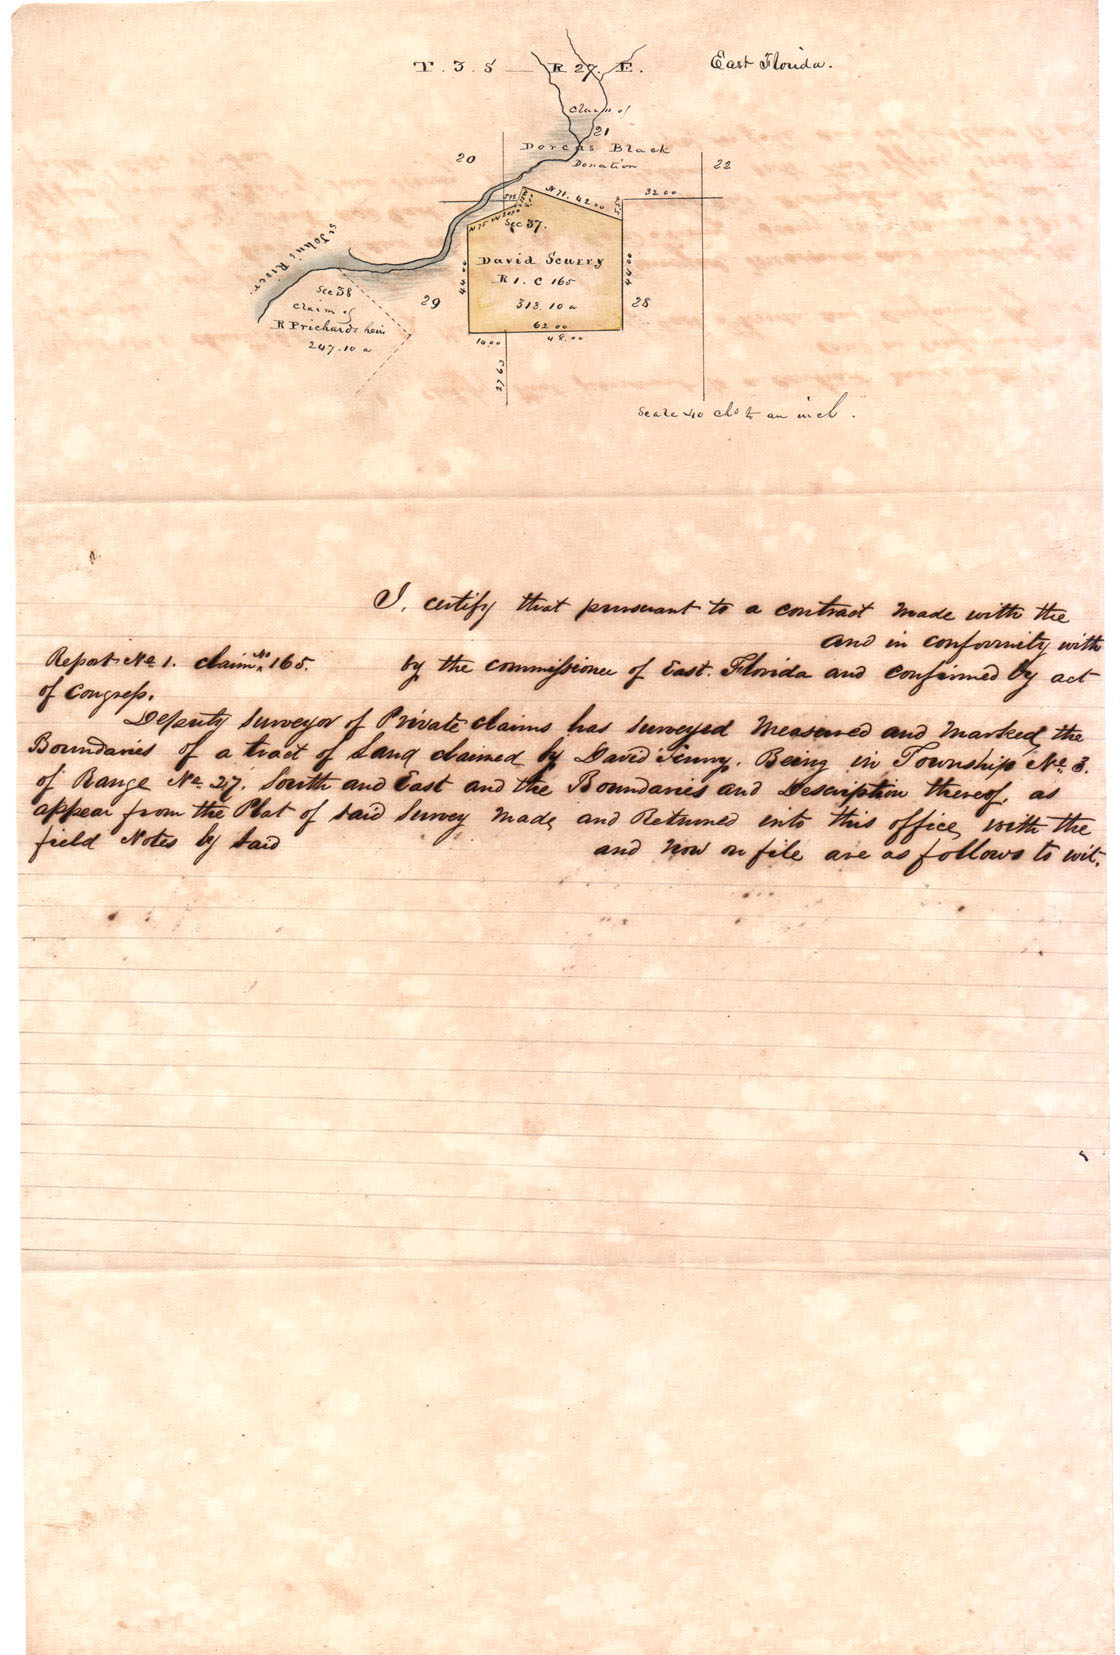 T. 3. S — R 27. E.
East Florida.
Claim of
21
Dorcas Black
Donation
20
22
N 71. 42 00
32 00
N 75 W
Sec 37.
David Scurry
R 1. C 165
313. 10 a
44 00
44 00
62 00
14.00
48.00
27 63
29
28
St Johns River
Sec 38
Claim of
R Prichards heirs
247.10 a
Scale 40 chs to an inch.
I, certify that pursuant to a contract made with the
and in conformity with
Report No 1. claim No 165. by the commissioner of East. Florida and confirmed by act
of Congress.
Deputy Surveyor of Private claims has surveyed Measured and Marked the
Boundaries of a tract of Land claimed by David. Being in Township No 3.
of Range No 27. South and East and the Boundaries and Description thereof, as
appear from the Plat of said Survey Made, and Returned into this office, with the
field Notes by said and now on file are as follows to wit.